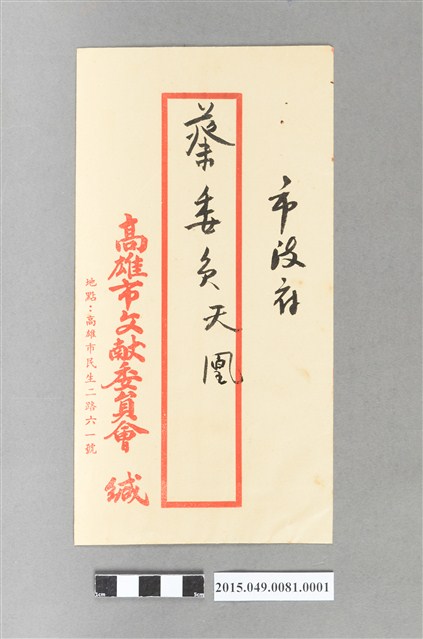 市政府
蔡委員天凰
高雄市文献委員會 緘
地點：高雄市民生二路六一號
1cm
5cm
2015.049.0081.0001